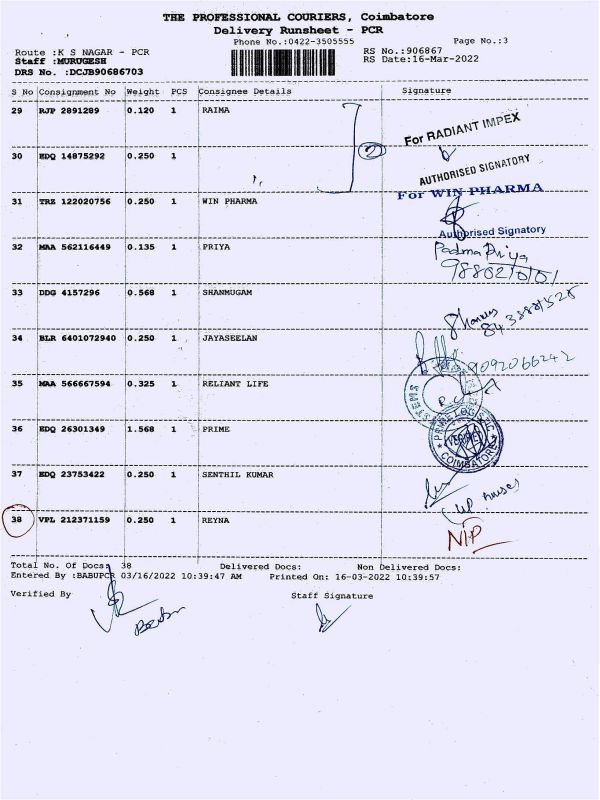 THE PROFESSIONAL COURIERS, Coimbatore
Delivery Runsheet - PCR
Phone No.:0422-3505555
Page No.:3
Route :K S NAGAR - PCR
RS No.:906867
Staff :MURUGESH
RS Date:16-Mar-2022
DRS No. :DCJB90686703
S No Consignment No Weight PCS Consignee Details Signature
29 RJP 2891289 0.120 1 RAIMA
For RADIANT IMPEX
2
30 EDQ 14875292 0.250 1
AUTHORISED SIGNATORY
For WIN PHARMA
31 TRZ 122020756 0.250 1 WIN PHARMA
Authorised Signatory
32 MAA 562116449 0.135 1 PRIYA
Padma Priya
9880210101
33 DDG 4157296 0.568 1 SHANMUGAM
34 BLR 6401072940 0.250 1 JAYASEELAN
9092066242
35 MAA 566667594 0.325 1 RELIANT LIFE
36 EDQ 26301349 1.568 1 PRIME
PRIME LOGISTIC
COIMBATORE
37 EDQ 23753422 0.250 1 SENTHIL KUMAR
38 VPL 212371159 0.250 1 REYNA
NIP
Total No. Of Docs: 38 Delivered Docs: Non Delivered Docs:
Entered By :BABUPCR 03/16/2022 10:39:47 AM Printed On: 16-03-2022 10:39:57
Verified By Staff Signature